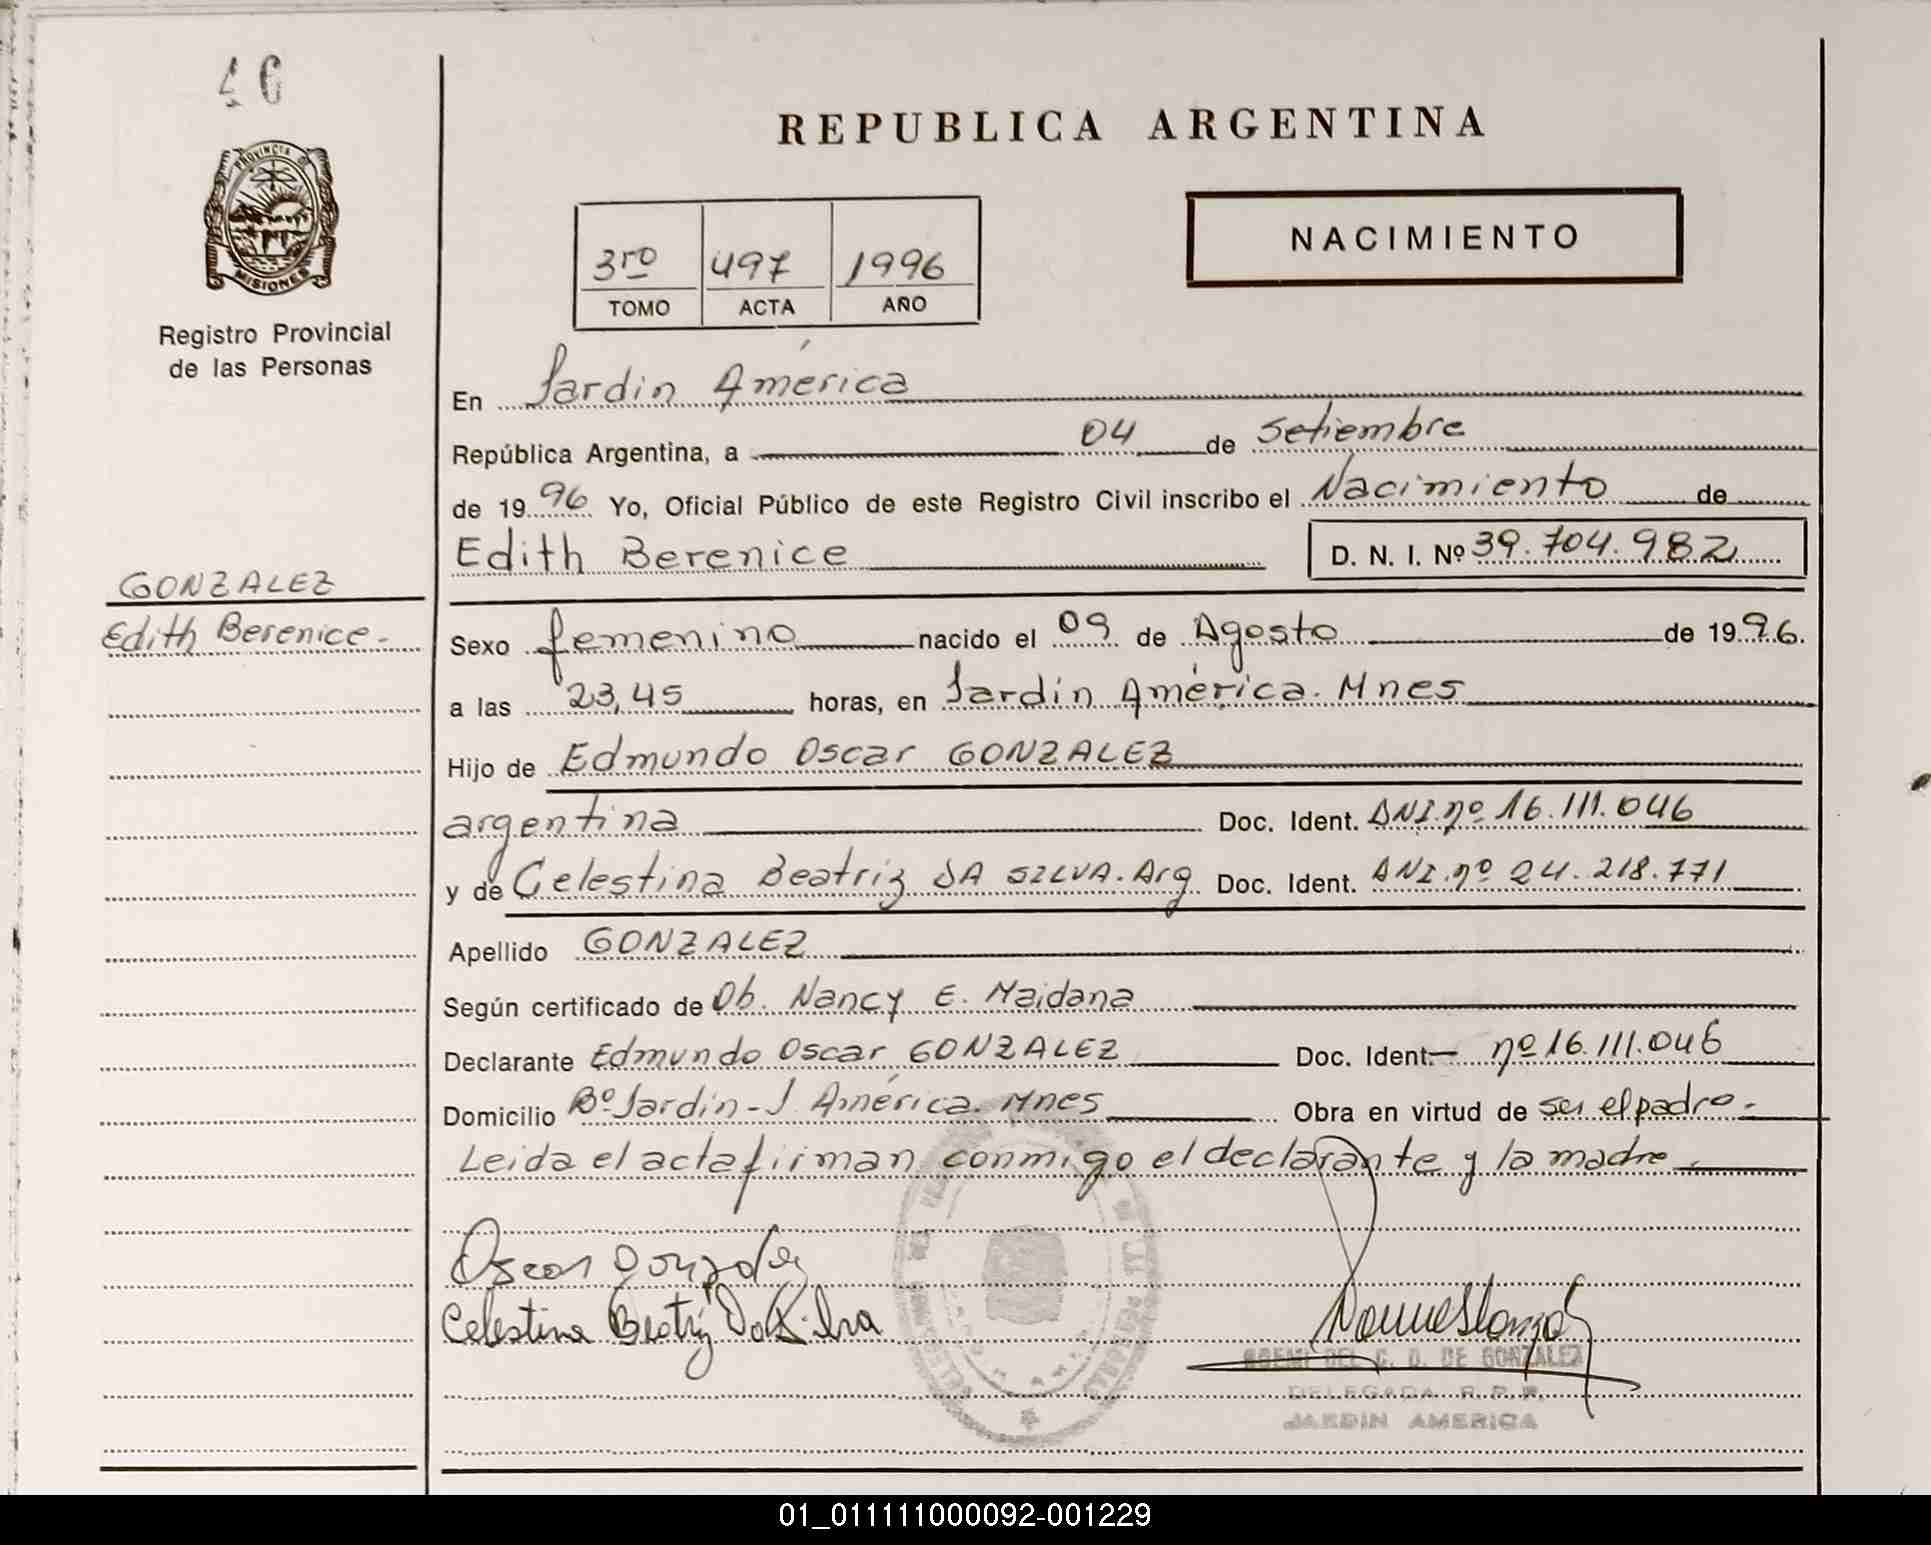 46
PROVINCIA DE
MISIONES
Registro Provincial
de las Personas
GONZALEZ
Edith Berenice.-
REPUBLICA ARGENTINA
3ro 497 1996
TOMO ACTA AÑO
NACIMIENTO
En Jardin América
República Argentina, a 04 de Setiembre
de 1996 Yo, Oficial Público de este Registro Civil inscribo el Nacimiento de
Edith Berenice D. N. I. Nº 39.704.982
Sexo femenino nacido el 09 de Agosto de 1996.
a las 23,45 horas, en Jardin América. Mnes
Hijo de Edmundo Oscar GONZALEZ
argentina Doc. Ident. DNI.nº 16.111.046
y de Celestina Beatriz DA SILVA. Arg Doc. Ident. DNI.nº 24.218.771
Apellido GONZALEZ
Según certificado de Ob. Nancy E. Maidana
Declarante Edmundo Oscar GONZALEZ Doc. Ident. nº 16.111.046
Domicilio Bº Jardin - J. América. Mnes Obra en virtud de ser el padre.-
Leida el acta firman conmigo el declarante y la madre.
Oscar Gonzalez
Celestina Beatriz Da Silva
DEL C. D. DE GONZALEZ
DELEGADA R.P.P.
JARDIN AMERICA
01_011111000092-001229